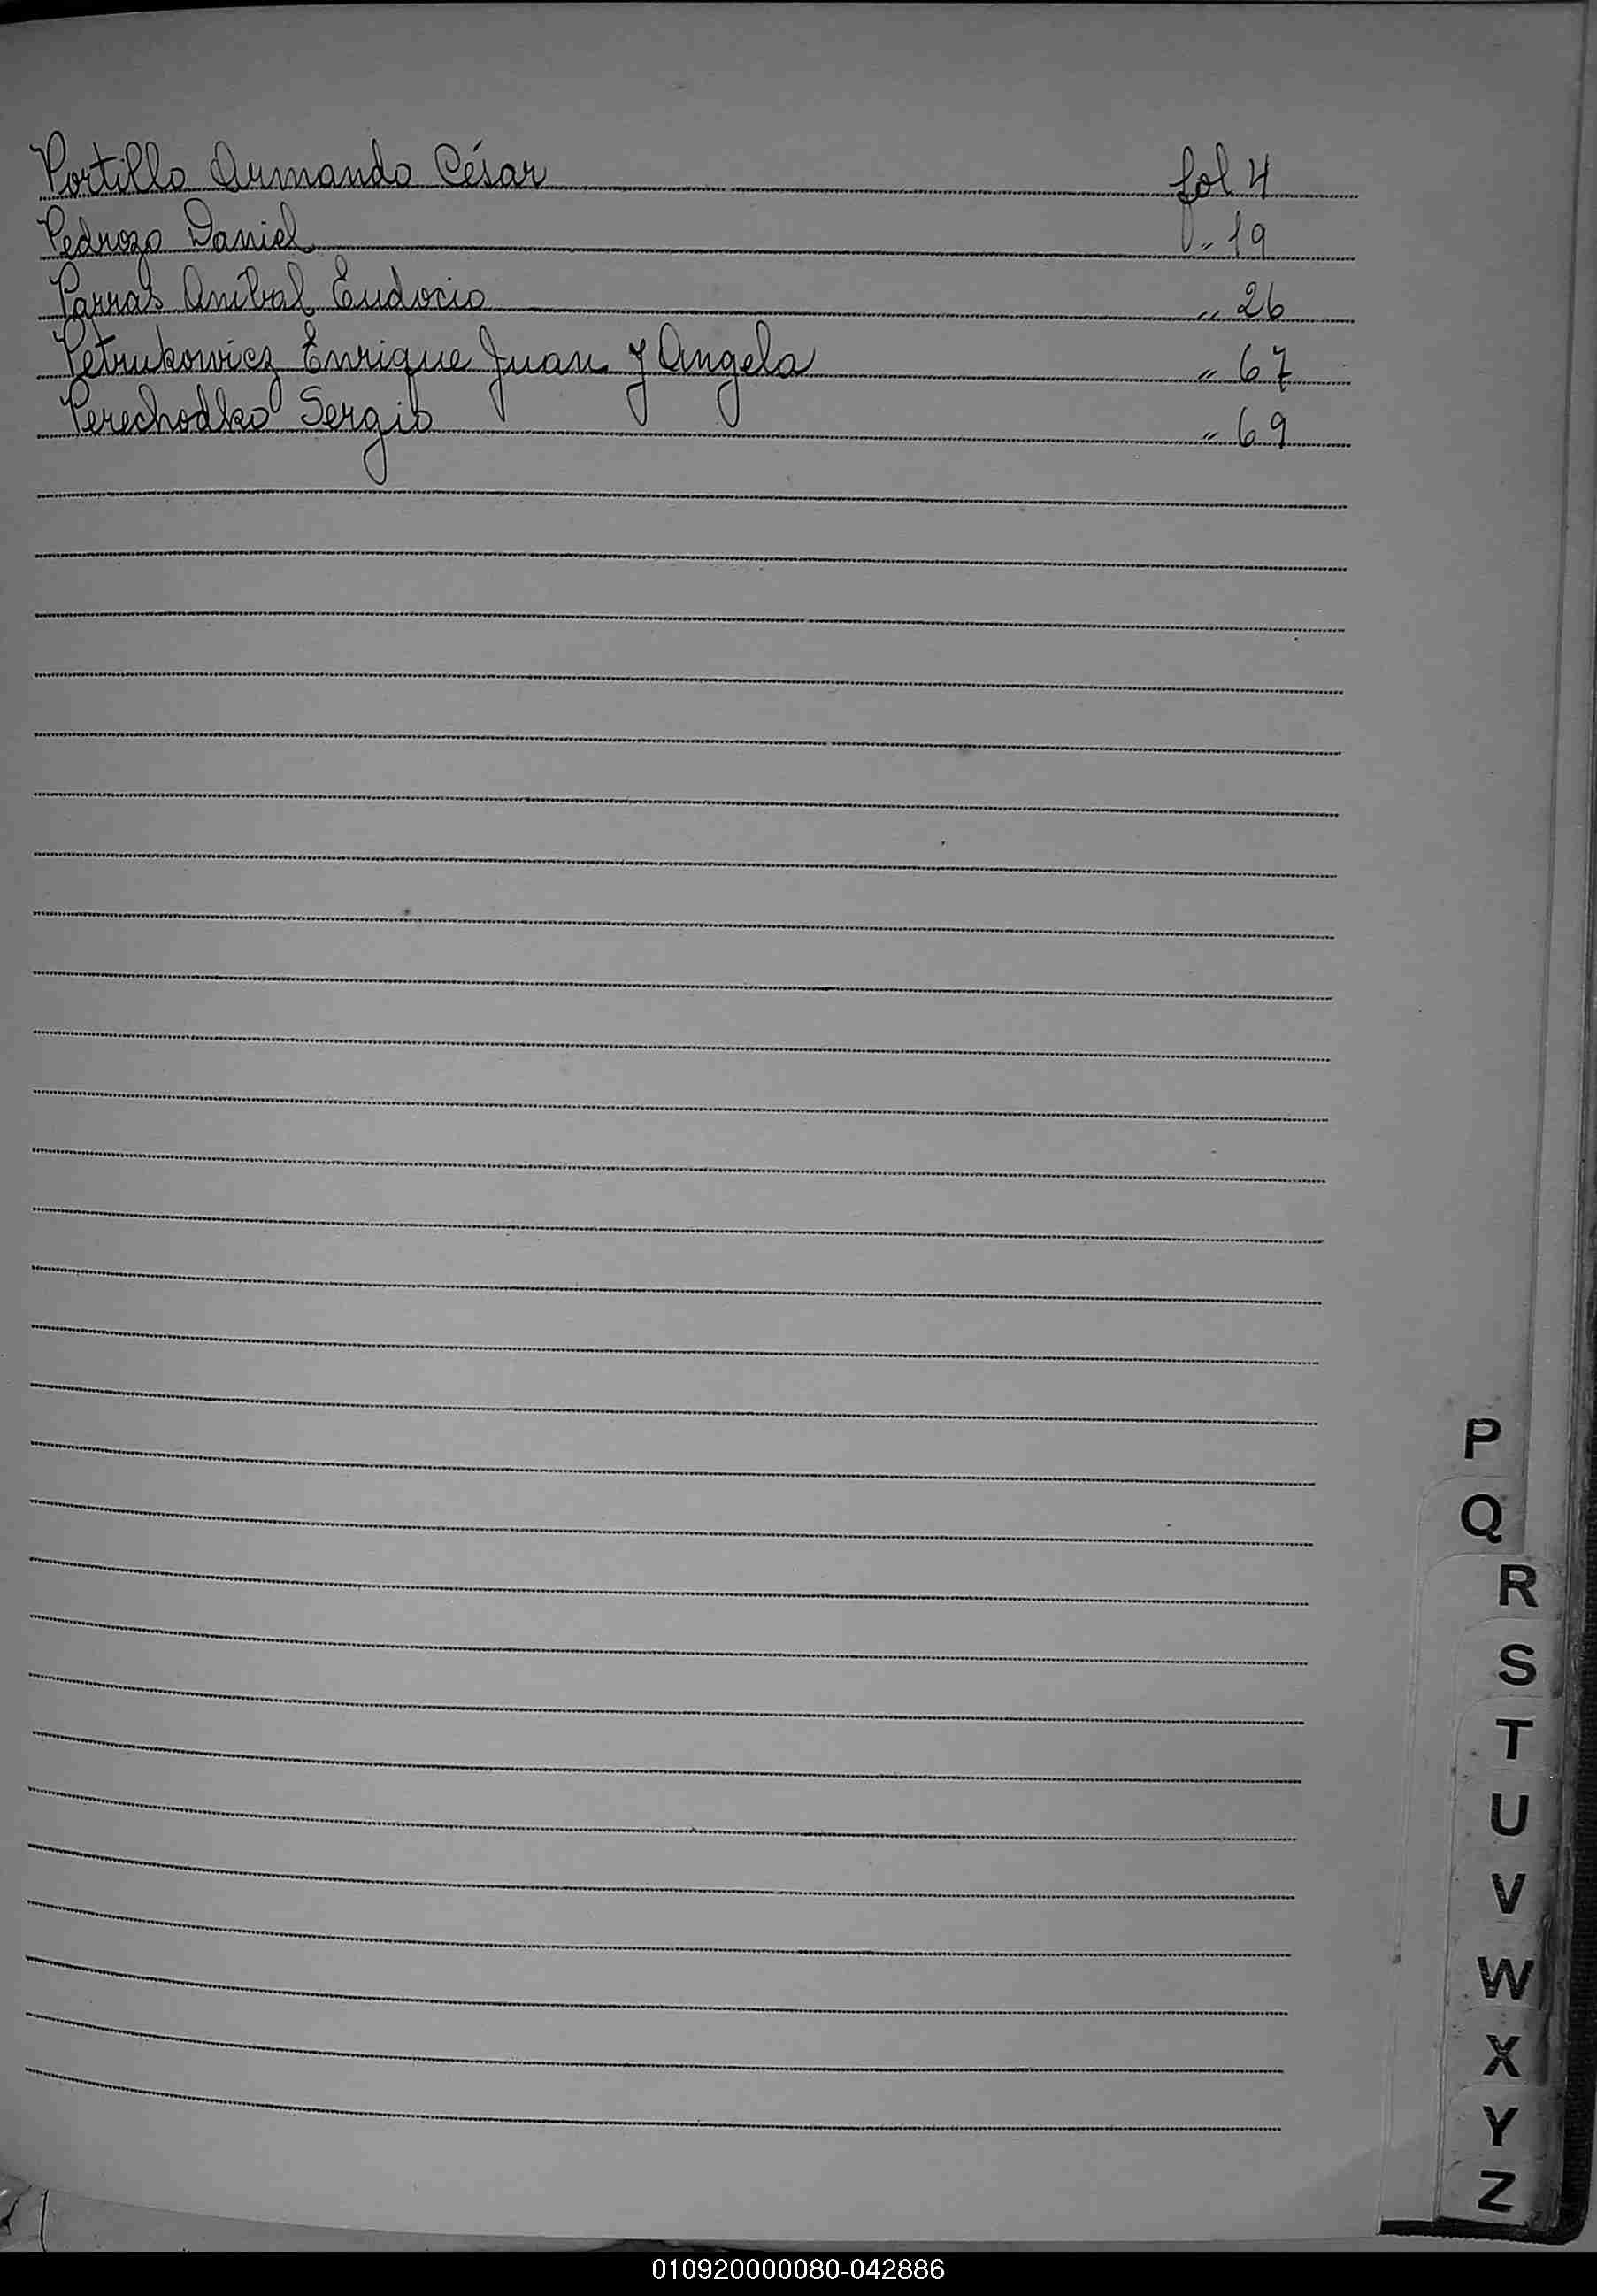 Portillo Armando César fol 4
Pedrozo Daniel " 19
Parras Anibal Eudocio " 26
Petrukowicz Enrique Juan y Angela " 67
Perechodko Sergio " 69
P
Q
R
S
T
U
V
W
X
Y
Z
010920000080-042886